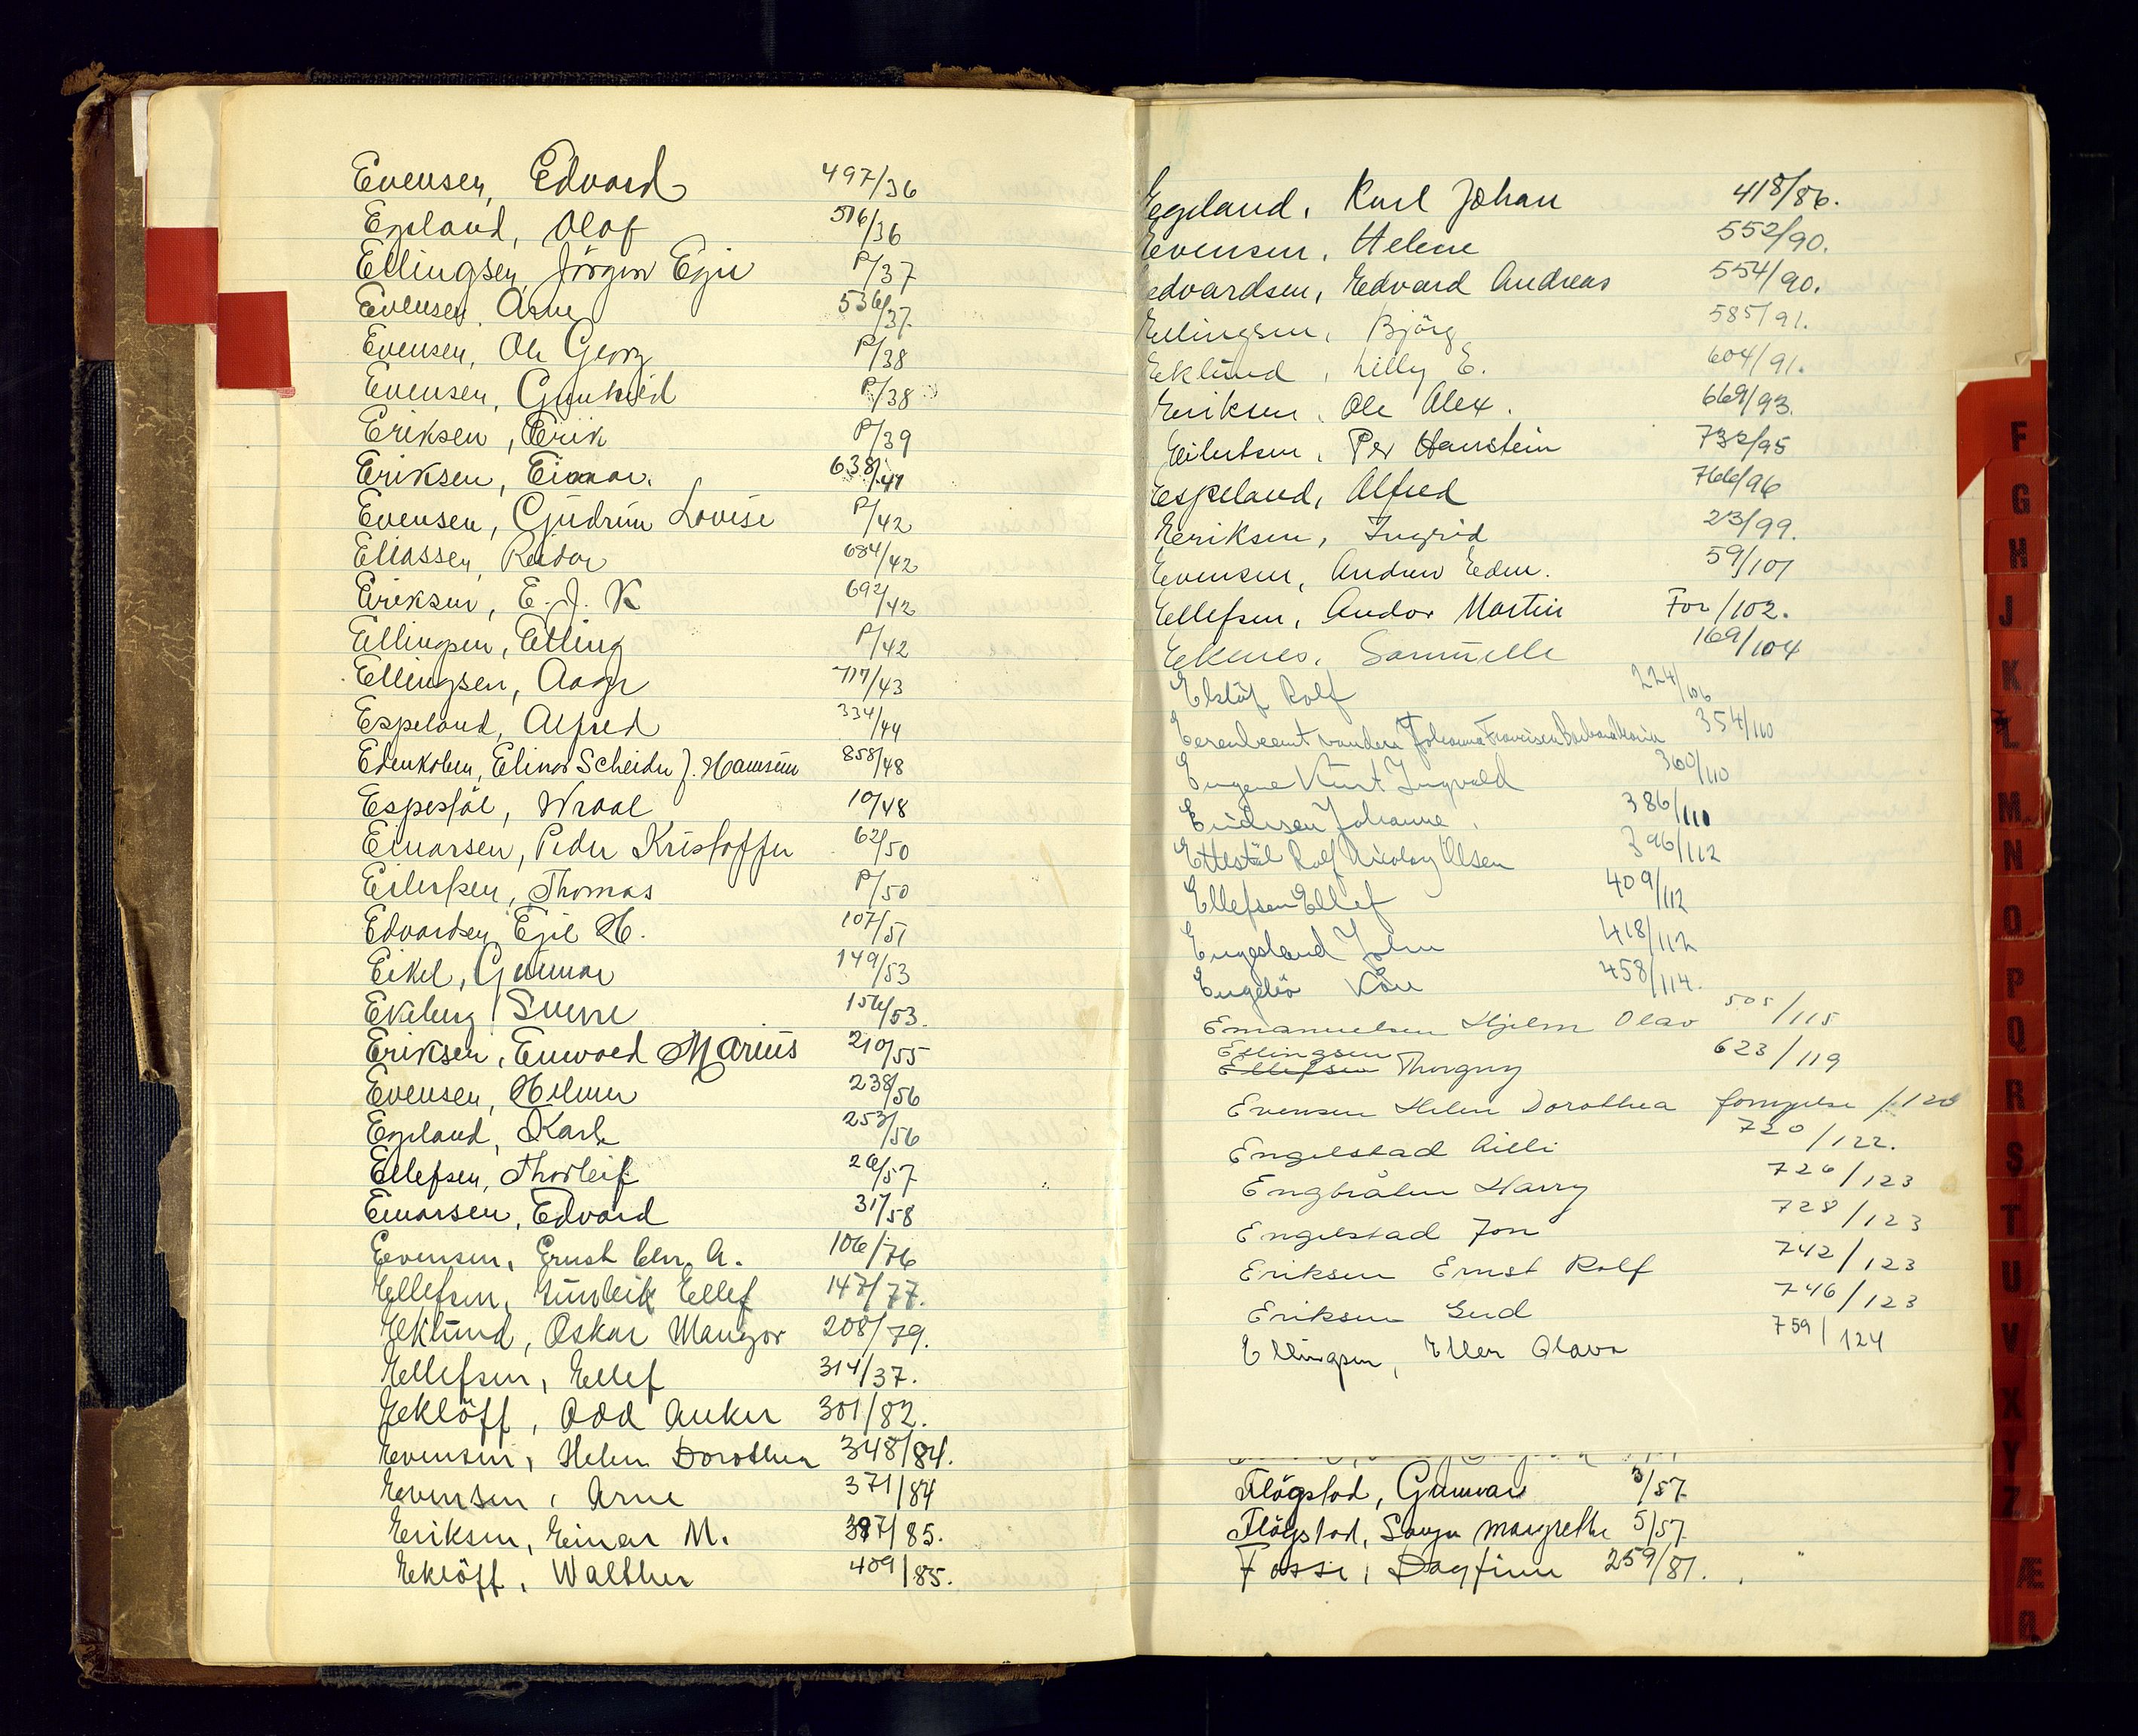 Evensen, Edvard 497/36
Egeland, Olaf 516/36
Ellingsen, Jörgen Egil P/37
Evensen, Arne 536/37.
Evensen, Ole Georg P/38
Evensen, Gunhild P/38
Eriksen, Erik P/39
Eriksen, Einar. 638/41
Evensen, Gudrun Lovise P/42
Eliassen, Reidar 684/42
Eriksen, E. J. K 692/42
Ellingsen, Erling P/42
Ellingsen, Aage 717/43
Espeland, Alfred 334/44
Edenkoben, Elinor Scheider f. Hamsun 858/48
Espestöl, Wraal 10/48
Einarsen, Peder Kristoffer 62/50
Eilertsen, Thomas P/50
Edvardsen Egil H. 107/51
Eikel, Gunnar 149/53
Ekeberg, Sverre 156/53.
Eriksen, Enwald Marius 210/55
Evensen, Hilmer 238/56
Egeland, Karl. 253/56
Ellefsen, Thorleif 26/57
Einarsen, Edvard 31/58
Evensen, Ernst Chr. A. 106/76
Ellefsen, Gunleik Ellef 147/77.
Eklund, Oskar Mangor 208/79.
Ellefsen, Ellef 314/37.
Eklöff, Odd Anker 301/82.
Evensen, Helen Dorothea 348/84.
Evensen, Arne 371/84
Eriksen, Einar M. 387/85.
Eklöff, Walther 409/85.
Egeland, Karl Johan 418/86.
Evensen, Helene 552/90.
Edvardsen, Edvard Andreas 554/90.
Ellingsen, Björg 585/91.
Eklund, Lilly E. 604/91.
Eriksen, Ole Alex. 669/93.
Eilertsen, Per Hanstein 732/95
Espeland, Alfred 766/96
Eriksen, Ingrid 23/99.
Evensen, Andrew Edm. 59/101
Ellefsen, Andor Martin For/102.
Ekenes, Samuelle 169/104
Elstöf Rolf 224/106
Eerenbeemt van den Johanna Francisca Barbara Maria 354/110
Eugene Kurt Ingvald 360/110
Endresen Johanne. 386/110
Ettestöl Rolf Nicolay Olsen 396/112
Ellefsen Ellef 409/112
Engesland John 418/112
Engeliö Kåre 458/114.
Emanuelsen Hjelm Olav 505/115
Ellingsen
Ellefsen Thorguy 623/119
Evensen Helen Dorothea fornyelse /120
Engelstad Ailli 720/122.
Engbråten Harry 726/123
Engelstad Jon 728/123
Eriksen Ernst Rolf 742/123
Eriksen Gerd 746/123
Ellingsen, Ellen Olava 759/124
Flögstad, Gunnar 3/57
Flögstad, Sonja Margrethe 5/57
Fosse, Dagfinn 259/81.
F
G
H
J
K
L
M
N
O
P
Q
R
S
T
U
V
X
Y
Z
Æ